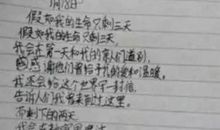 1月18日
假如我的生命只剩三天
假如我的生命只剩三天,
我会在第一天和我的家人道别,
感谢他们曾给予我的爱和温暖,
我还会给这个世界写一封信,
告诉人们我曾来到过这里。
而剩下的两天